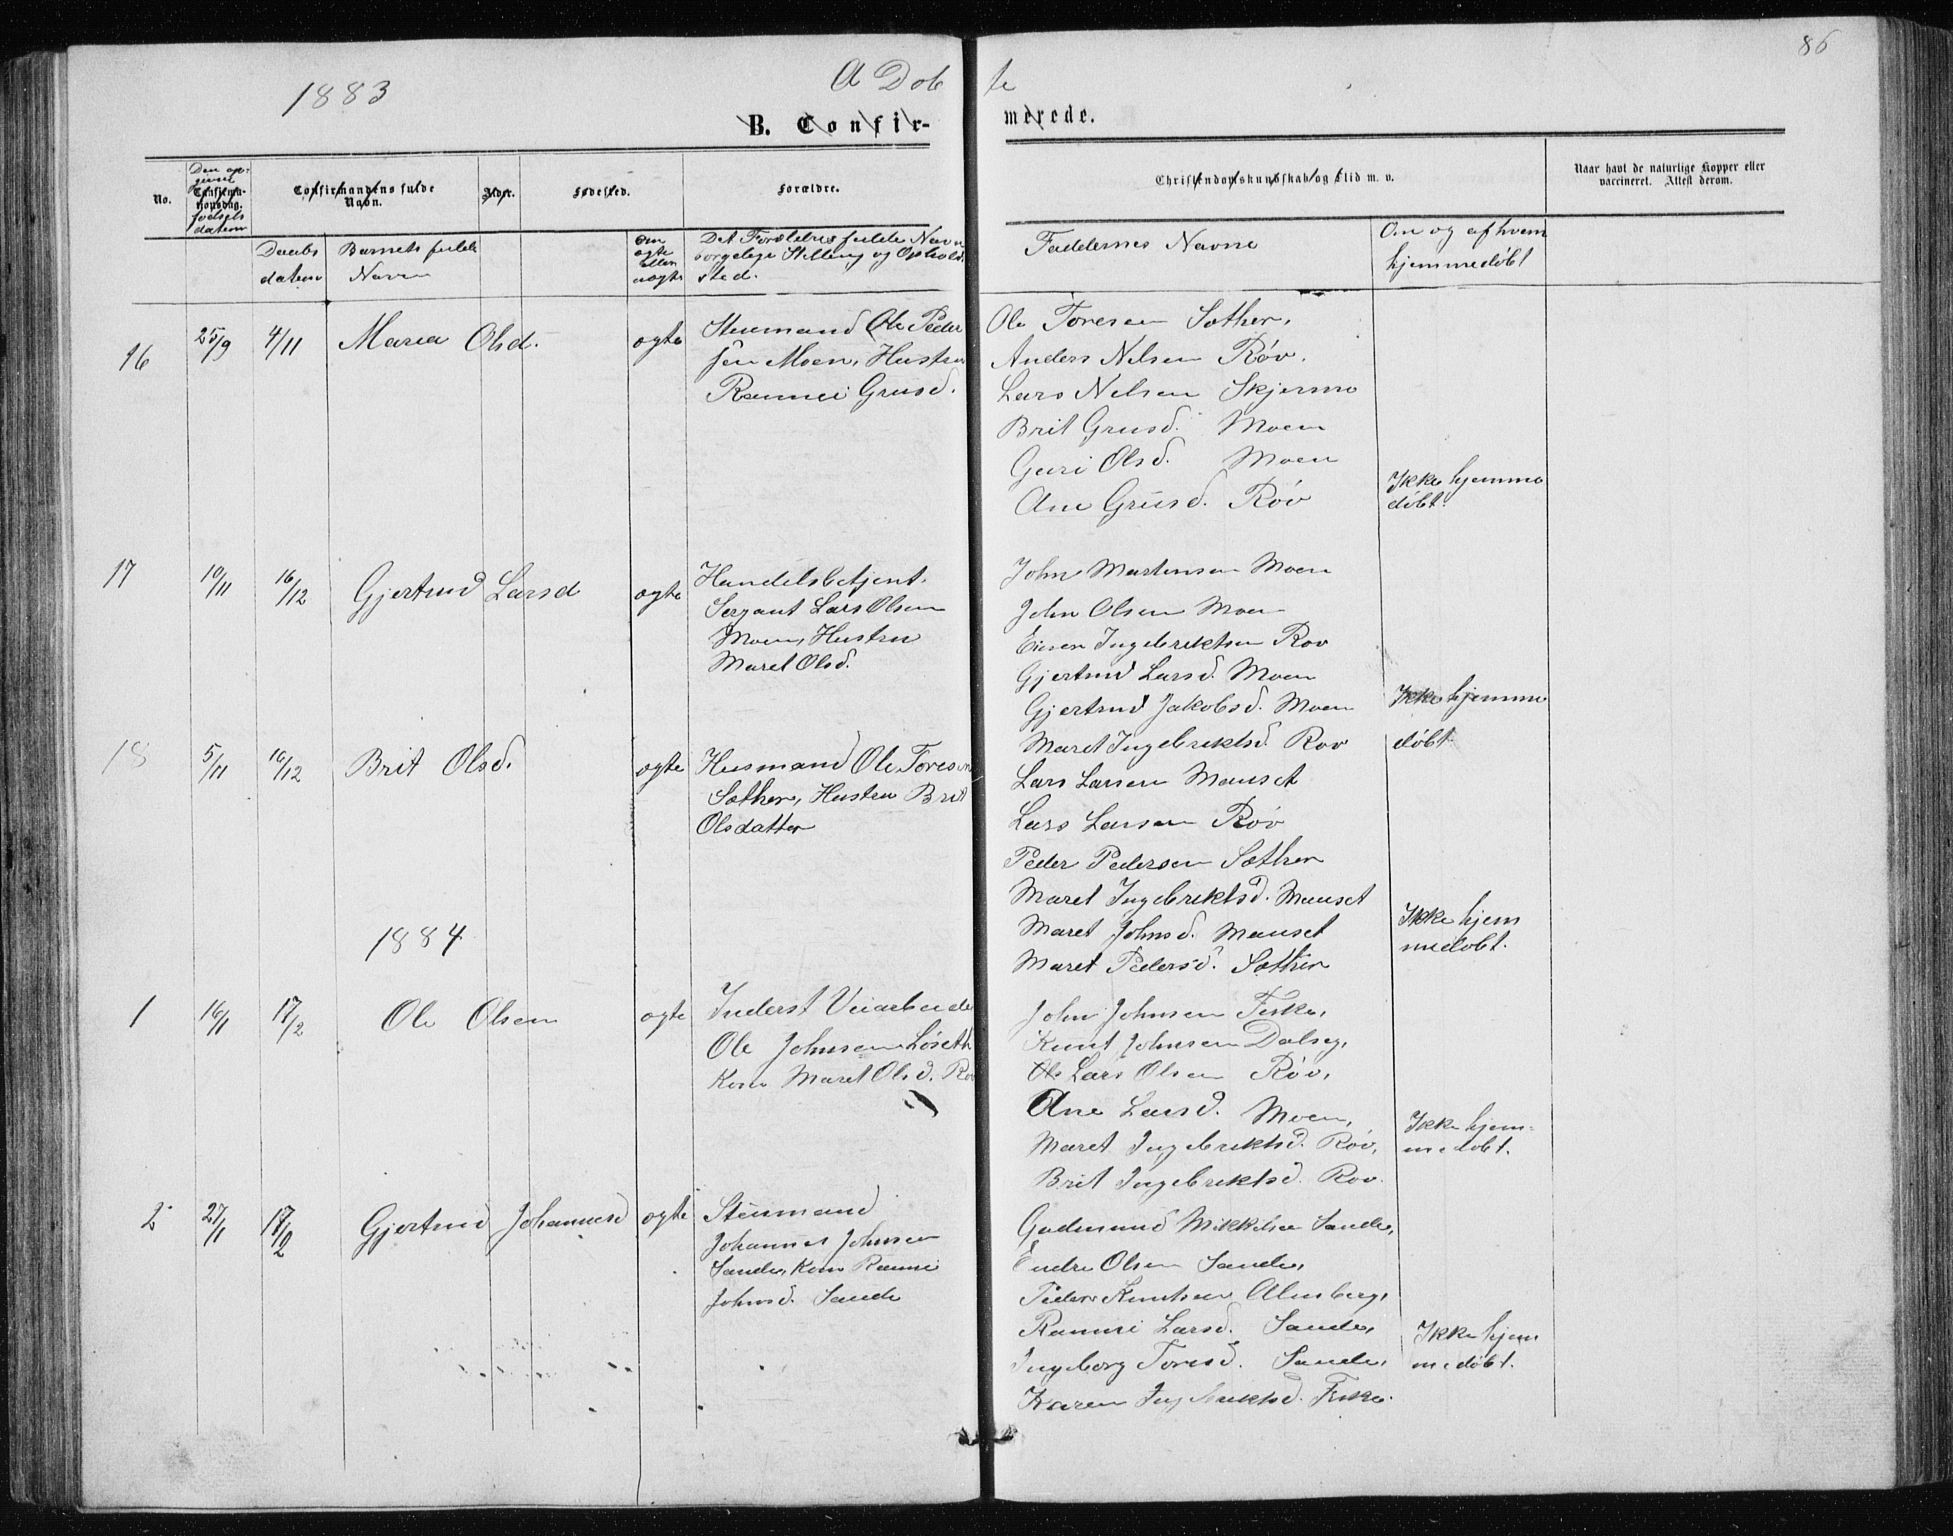 86
1883
A Dob te
B. Confir- merede.
No.
Den op-
givne
Confirma-
tionsdag.
fodsels
datum
Confirmandens fulde
Navn.
Alder.
Fødested.
Forældre.
Christendomskundskab og Flid m. v.
Naar havt de naturlige Kopper eller
vaccineret. Attest derom.
Daabs
datum
Barnets fulde
Navn
om
ægte
eller
uægte
Det Forældres fulde Navn
borgelige Stilling og Opholds
sted.
Faddernes Navne
Om og af hvem
hjemmedøbt
16
25/9
4/11
Maria Olsd.
ægte
Stenmand Ole Peder
sen Moen, Hustru
Rannei Grusd.
Ole Toresen Sæther,
Anders Nelsen Røv.
Lars Nelsen Skjermo
Brit Grusd. Moen
Guri Olsd. Moen
Ane Grusd. Røv
Ikke hjemme
døbt.
17
10/11
16/12
Gjertrud Larsd
ægte
Handelsbetjent.
Sergant Lars Olsen
Moen, Hustru
Maret Olsd.
John Martensen Moen
John Olsen Moen
Ingebriktsen Rov
Gjertrud Larsd. Moen
Gjertrud Jakobsd. Moen
Maret Ingebriktsd. Rov
Ikke hjemme
døbt.
18
5/11
16/12
Brit Olsd.
ægte
Husmand Ole Toresen
Sæther, Hustru Brit
Olsdatter
Lars Larsen Mauset
Lars Larsen Røv
Peder Pedersen Sæther
Maret Ingebriktsd. Mauset
Maret Johnsd. Mauset
Maret Pedersd. Sæther
Ikke hjem
medøbt.
1884
1
16/1
17/2
Ole Olsen
ægte
Inderst Veiarbeider
Ole Johnsen Løseth
Kone Maret Olsd. Rov
John Johnsen Fiske,
Knut Johnsen Dalseg,
Ole Lars Olsen Røv,
Ane Larsd. Moen,
Maret Ingebriktsd. Røv,
Brit Ingebriktsd. Rov.
Ikke hjem-
medøbt.
2
27/1
17/2
Gjertrud Johannesd
ægte
Stenmand
Johannes Johnsen
Sande, Kone Rannei
Johnsd. Sande
Gudmund Mikkelsen Sande,
Endre Olsen Sande,
Peder Knutsen Almberg,
Rannei Larsd. Sande,
Ingeborg Toresd. Sande,
Karen Ingebriktsd. Fiske.
Ikke hjem
medøbt.